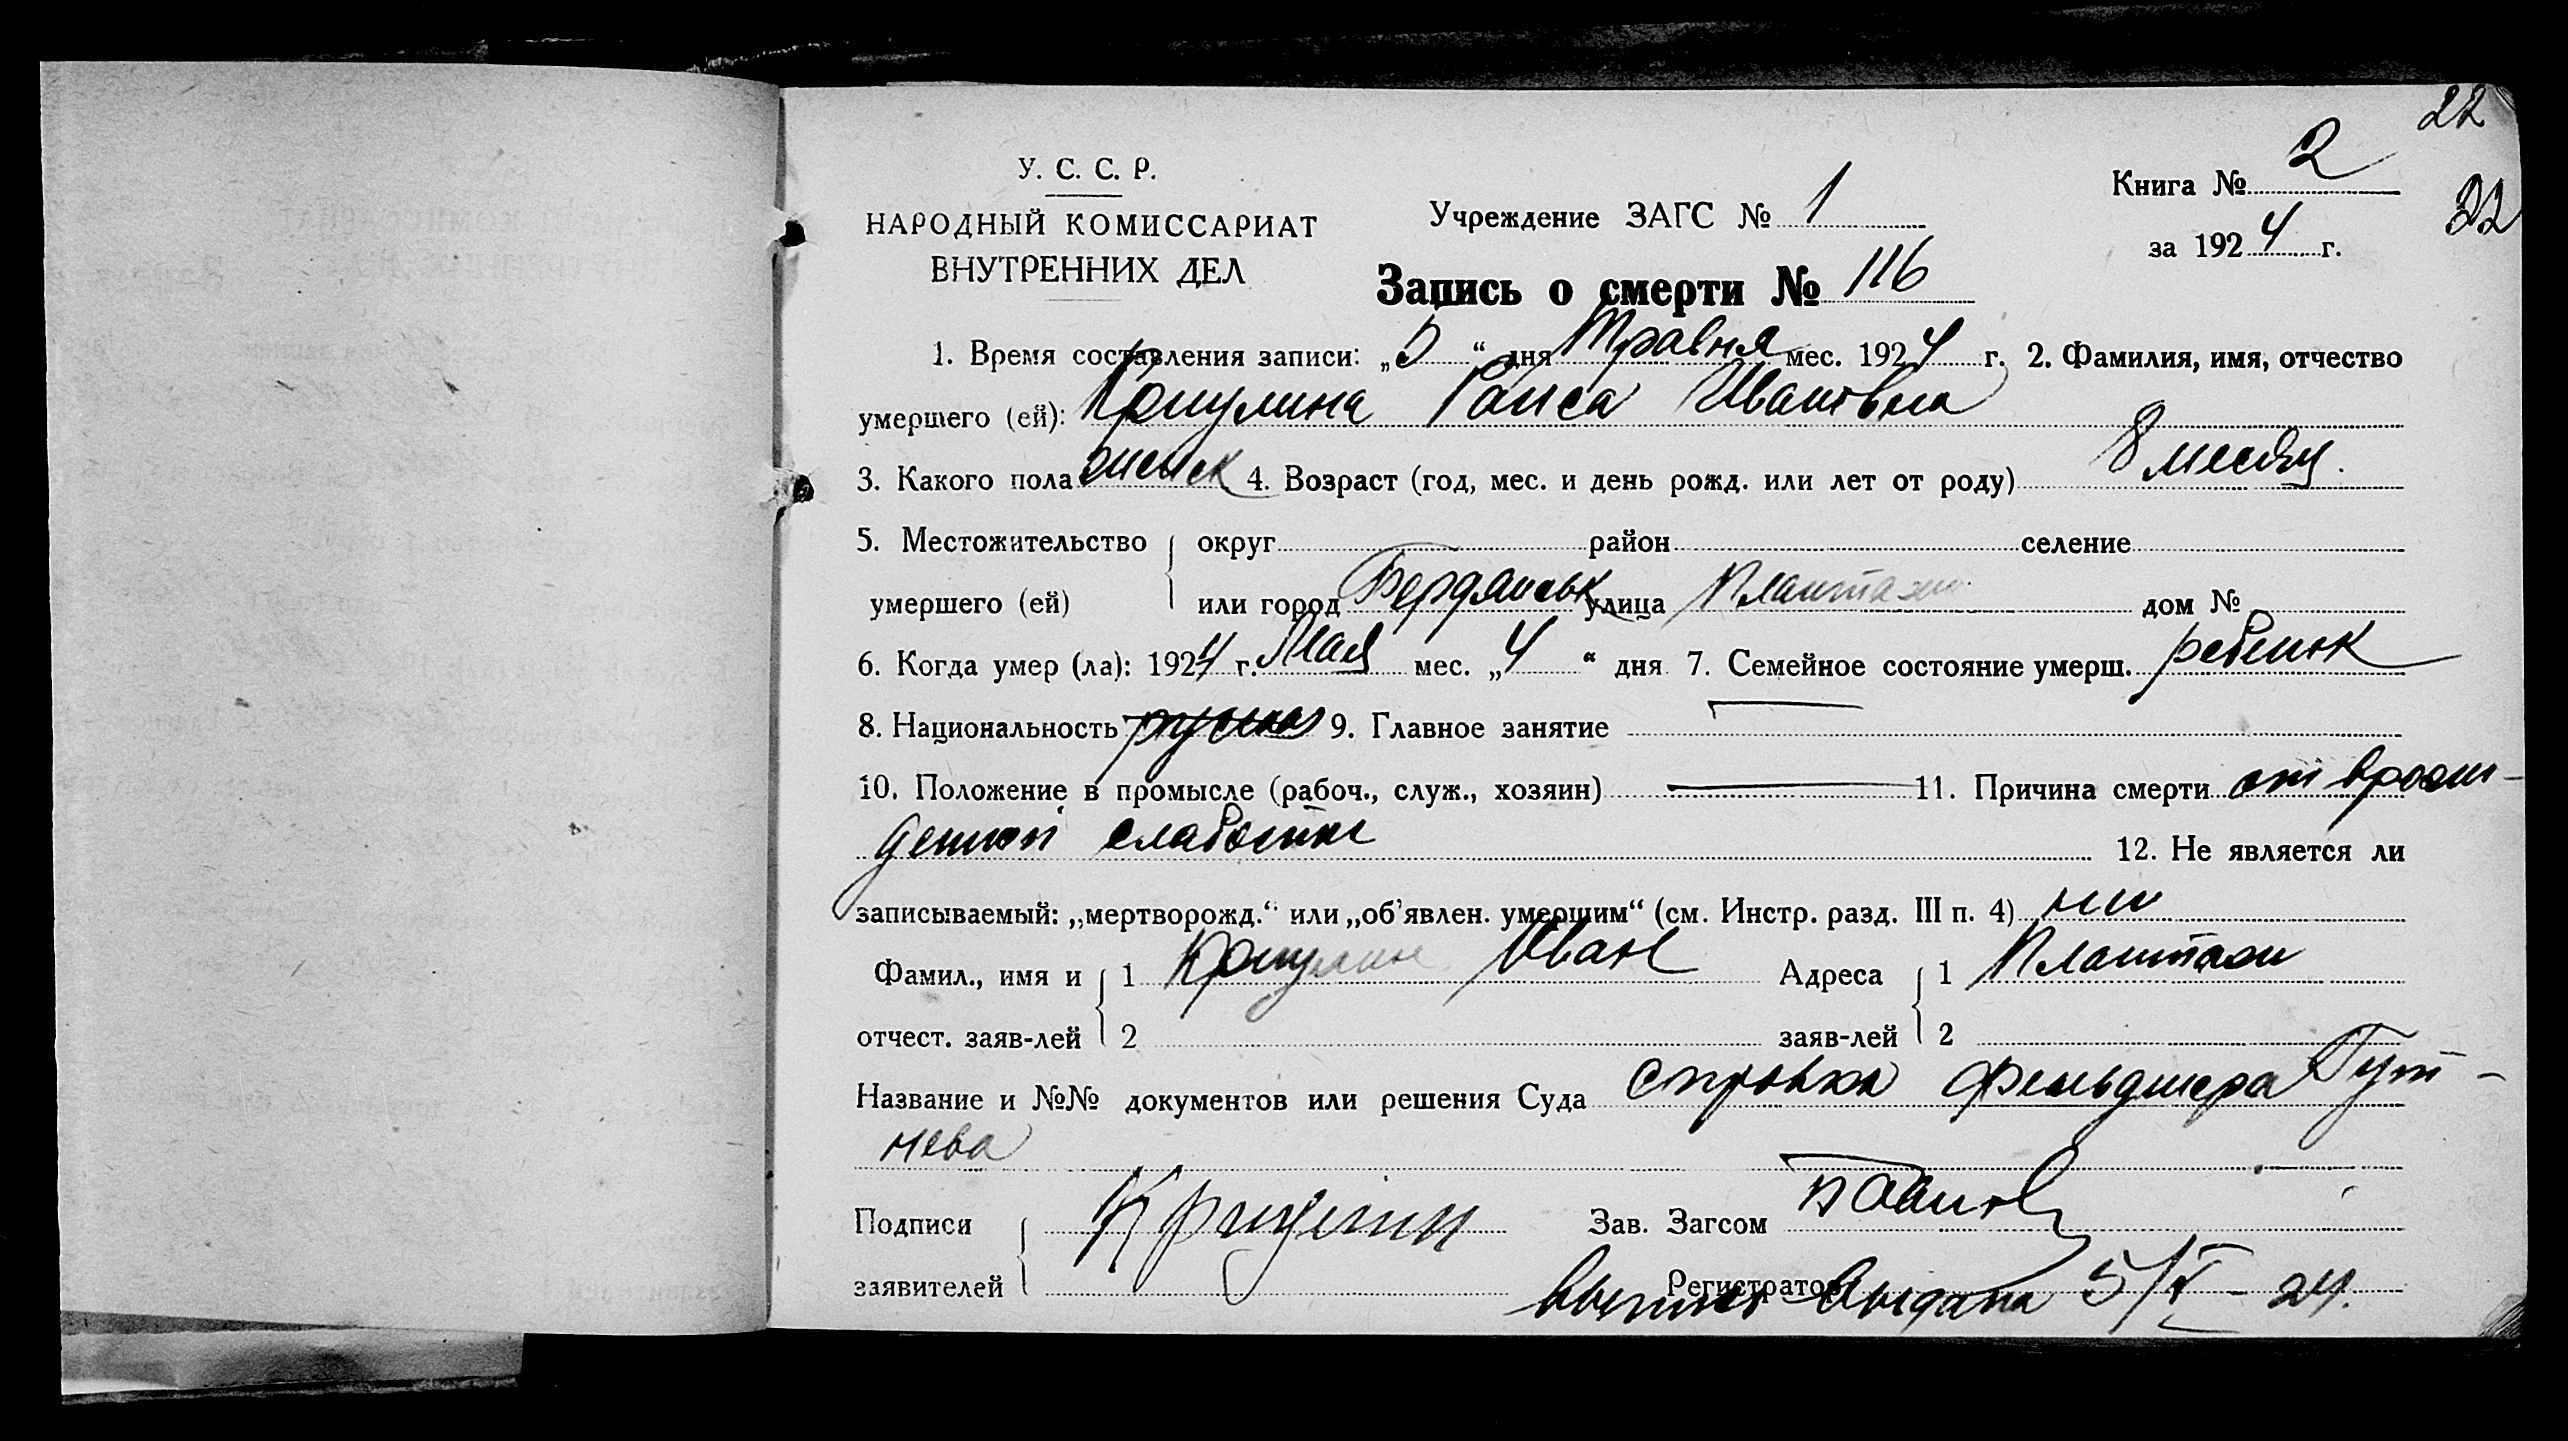 22
У. С. С. Р.
Книга № 2
22
НАРОДНЫЙ КОМИССАРИАТ
Учреждение ЗАГС № 1
за 1924 г.
ВНУТРЕННИХ ДЕЛ
Запись о смерти № 116
1. Время составления записи: „5“ дня Травня мес. 1924 г. 2. Фамилия, имя, отчество
умершего (ей): Раиса Ивановна
3. Какого пола женск 4. Возраст (год, мес. и день рожд. или лет от роду) 8 месяц.
5. Местожительство округ район селение
умершего (ей) или город Бердянськ улица Плантажи дом №
6. Когда умер (ла): 1924 г. Мая мес. „4“ дня 7. Семейное состояние умерш. ребенок
8. Национальность 9. Главное занятие —
10. Положение в промысле (рабоч., служ., хозяин) — 11. Причина смерти от врож-
денной слабости
12. Не является ли
записываемый: „мертворожд.“ или „об’явлен. умершим“ (см. Инстр. разд. III п. 4)
Фамил., имя и 1 Иван Адреса 1 Плантажи
отчест. заяв-лей 2 заяв-лей 2
Название и №№ документов или решения Суда справка фельдшера Гут-
нева
Подписи Зав. Загсом
заявителей Регистратор
выпись выдана 5/V - 24.